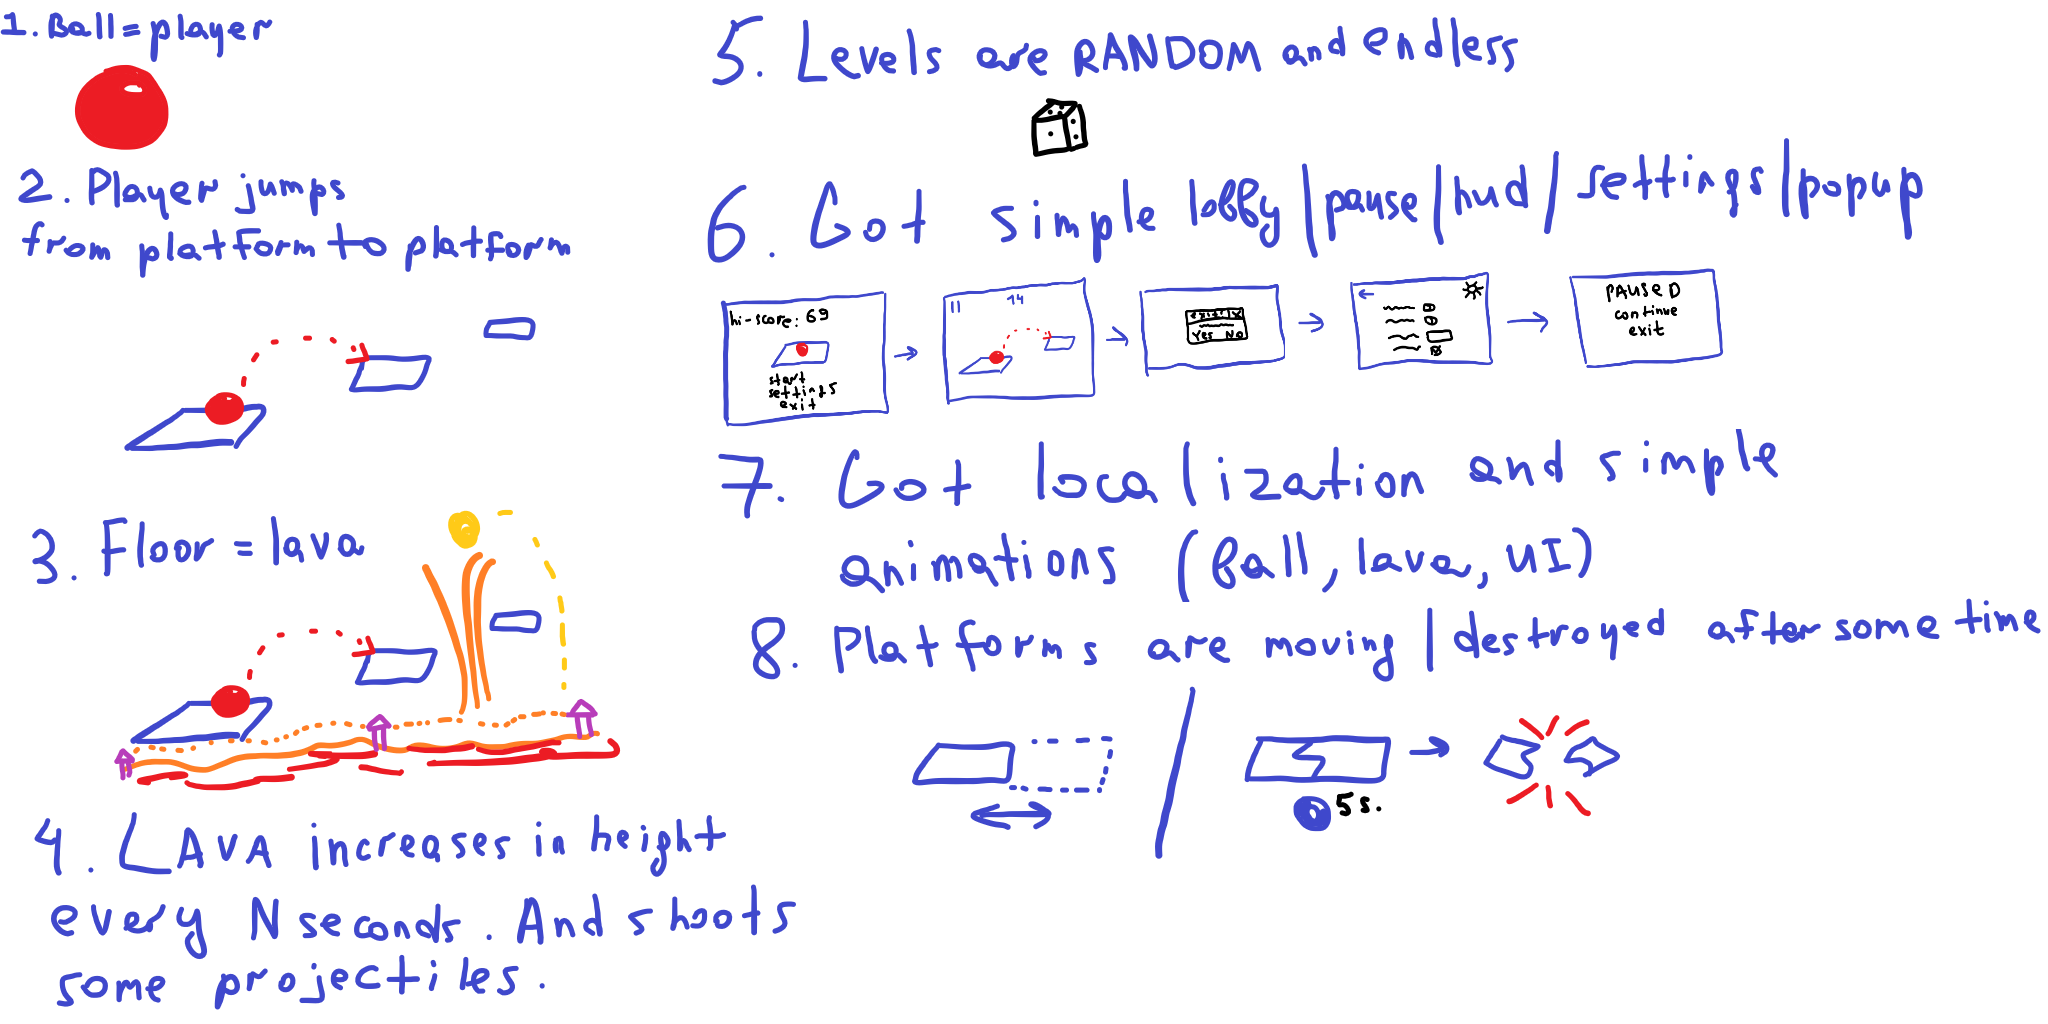 1. Ball = player
2. Player jumps
from platform to platform
3. Floor = lava
4. LAVA increases in height
every N seconds. And shoots
some projectiles.
5. Levels are RANDOM and endless
6. Got simple lobby/pause/hud/settings/popup
hi-score: 69
start
settings
exit
14
Yes No
PAUSED
continue
exit
7. Got localization and simple
animations (ball, lava, UI)
8. Platforms are moving/destroyed after some time
5s.